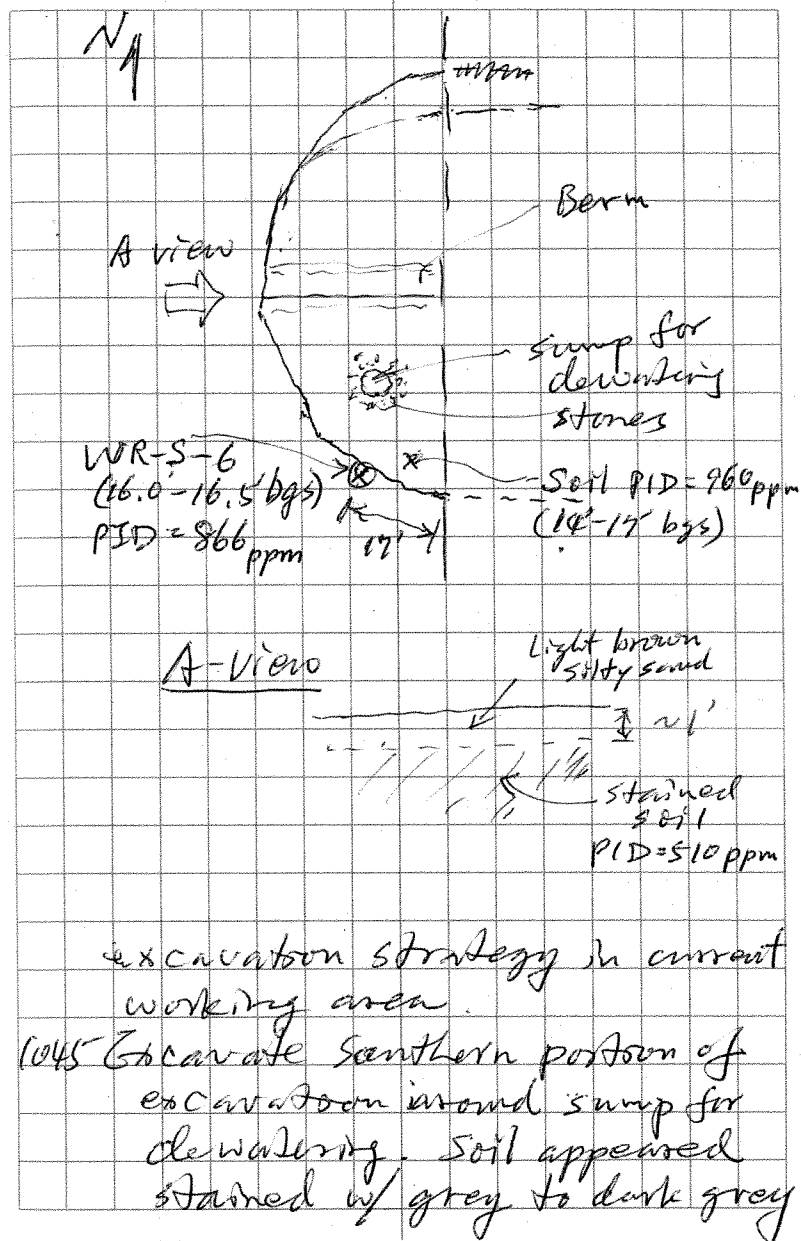 N
Berm
A view
sump for
dewatering
stones
WR-S-6
(16.0-16.5' bgs)
PID = 866 ppm
17'
Soil PID = 960 ppm
bgs)
A-View
Light brown
silty sand
~1'
stained
soil
PID=510 ppm
excavation strategy in current
working area.
1045 Excavate Southern portion of
excavation around sump for
dewatering. Soil appeared
stained w/ grey to dark grey